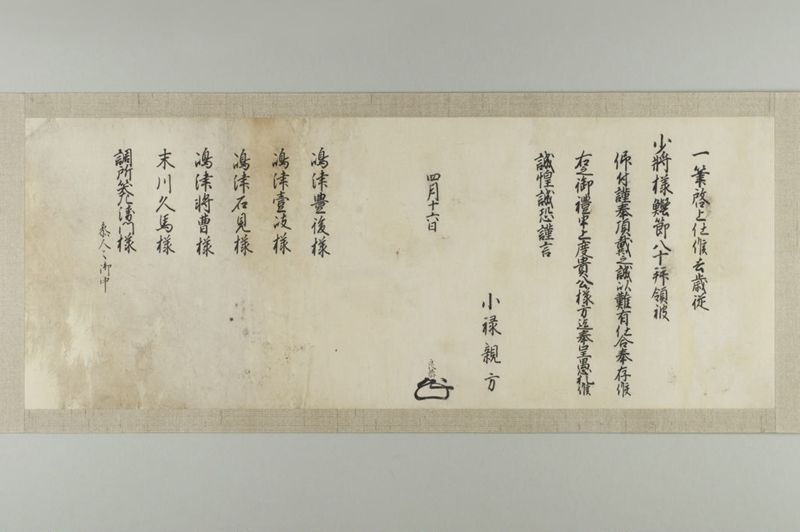 一筆啓上仕候去歳従
少将様鰹節八十拝領被
仰付謹奉頂戴之誠以難有仕合奉存候
右之御禮申上度貴公様方迄奉呈愚札候
誠惶誠恐謹言
小禄親方
四月十六日
嶋津豊後様
嶋津壹岐様
嶋津石見様
嶋津将曹様
末川久馬様
調所笑左衛門様
参人々御中